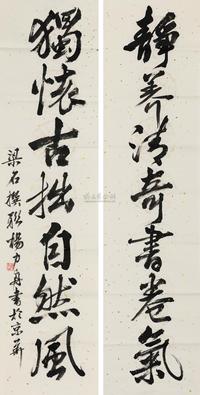 靜養清奇書卷氣
獨懷古拙自然風
梁石撰聯楊力舟書於京華